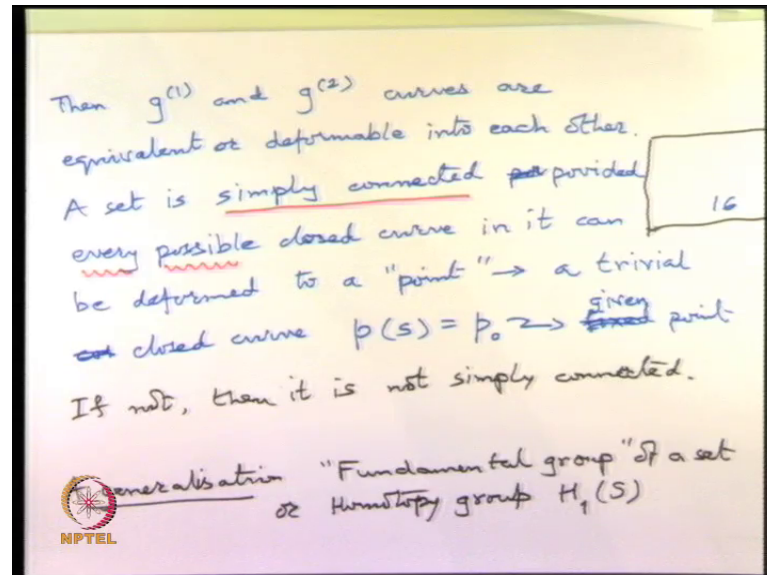 Then g(1) and g(2) curves are
equivalent or deformable into each other.
A set is simply connected povided
16
every possible closed curve in it can
be deformed to a "point" → a trivial
closed curve p(s) = p₀ → given point
If not, then it is not simply connected.
Generalisation "Fundamental group" of a set
or Homotopy group H₁(S)
NPTEL